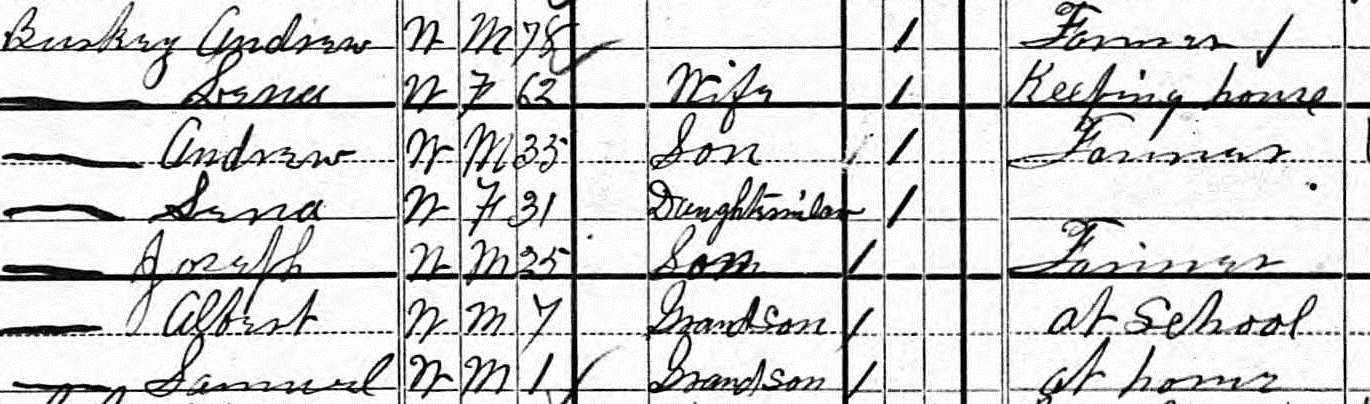 Buskey Andrew W M 78 1 Farmer
Lena W F 62 Wife 1 Keeping house
Andrew W M 35 Son 1 Farmer
W F 31 Daughterinlaw 1
Joseph W M 25 Son 1 Farmer
Albert W M 7 Grandson 1 at School
Samuel W M 1 Grandson 1 at home